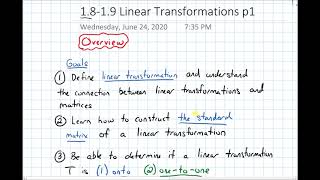 1.8-1.9 Linear Transformations p1
Wednesday, June 24, 2020 7:35 PM
Overview
Goals
① Define linear transformation and understand
the connection between linear transformations and
matrices
② Learn how to construct the standard
matrix of a linear transformation
③ Be able to determine if a linear transformation
T is (1) onto ② one-to-one